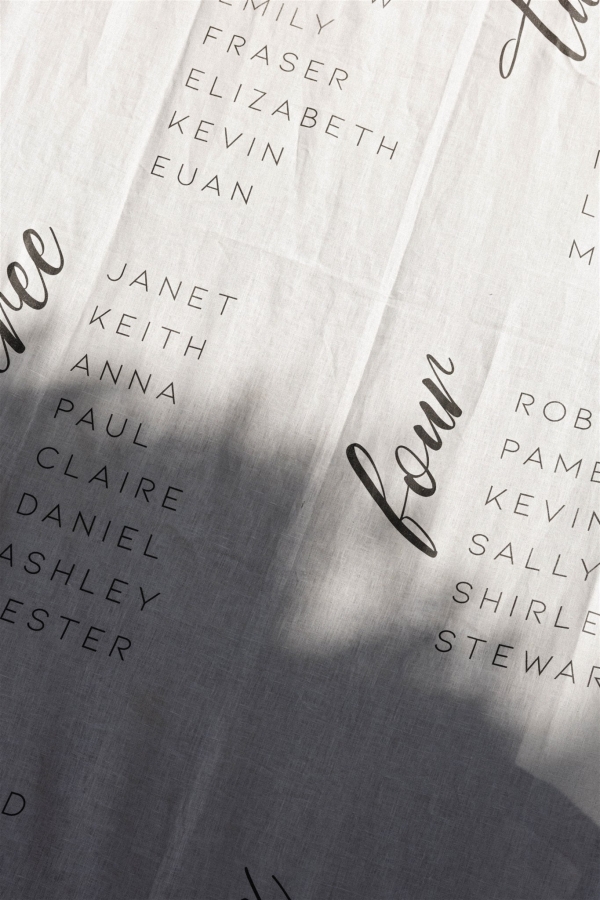 EMILY
FRASER
ELIZABETH
KEVIN
EUAN
JANET
KEITH
ANNA
PAUL
CLAIRE
DANIEL
ASHLEY
ESTER
four
ROB
PAME
KEVIN
SALLY
SHIRLE
STEWAR